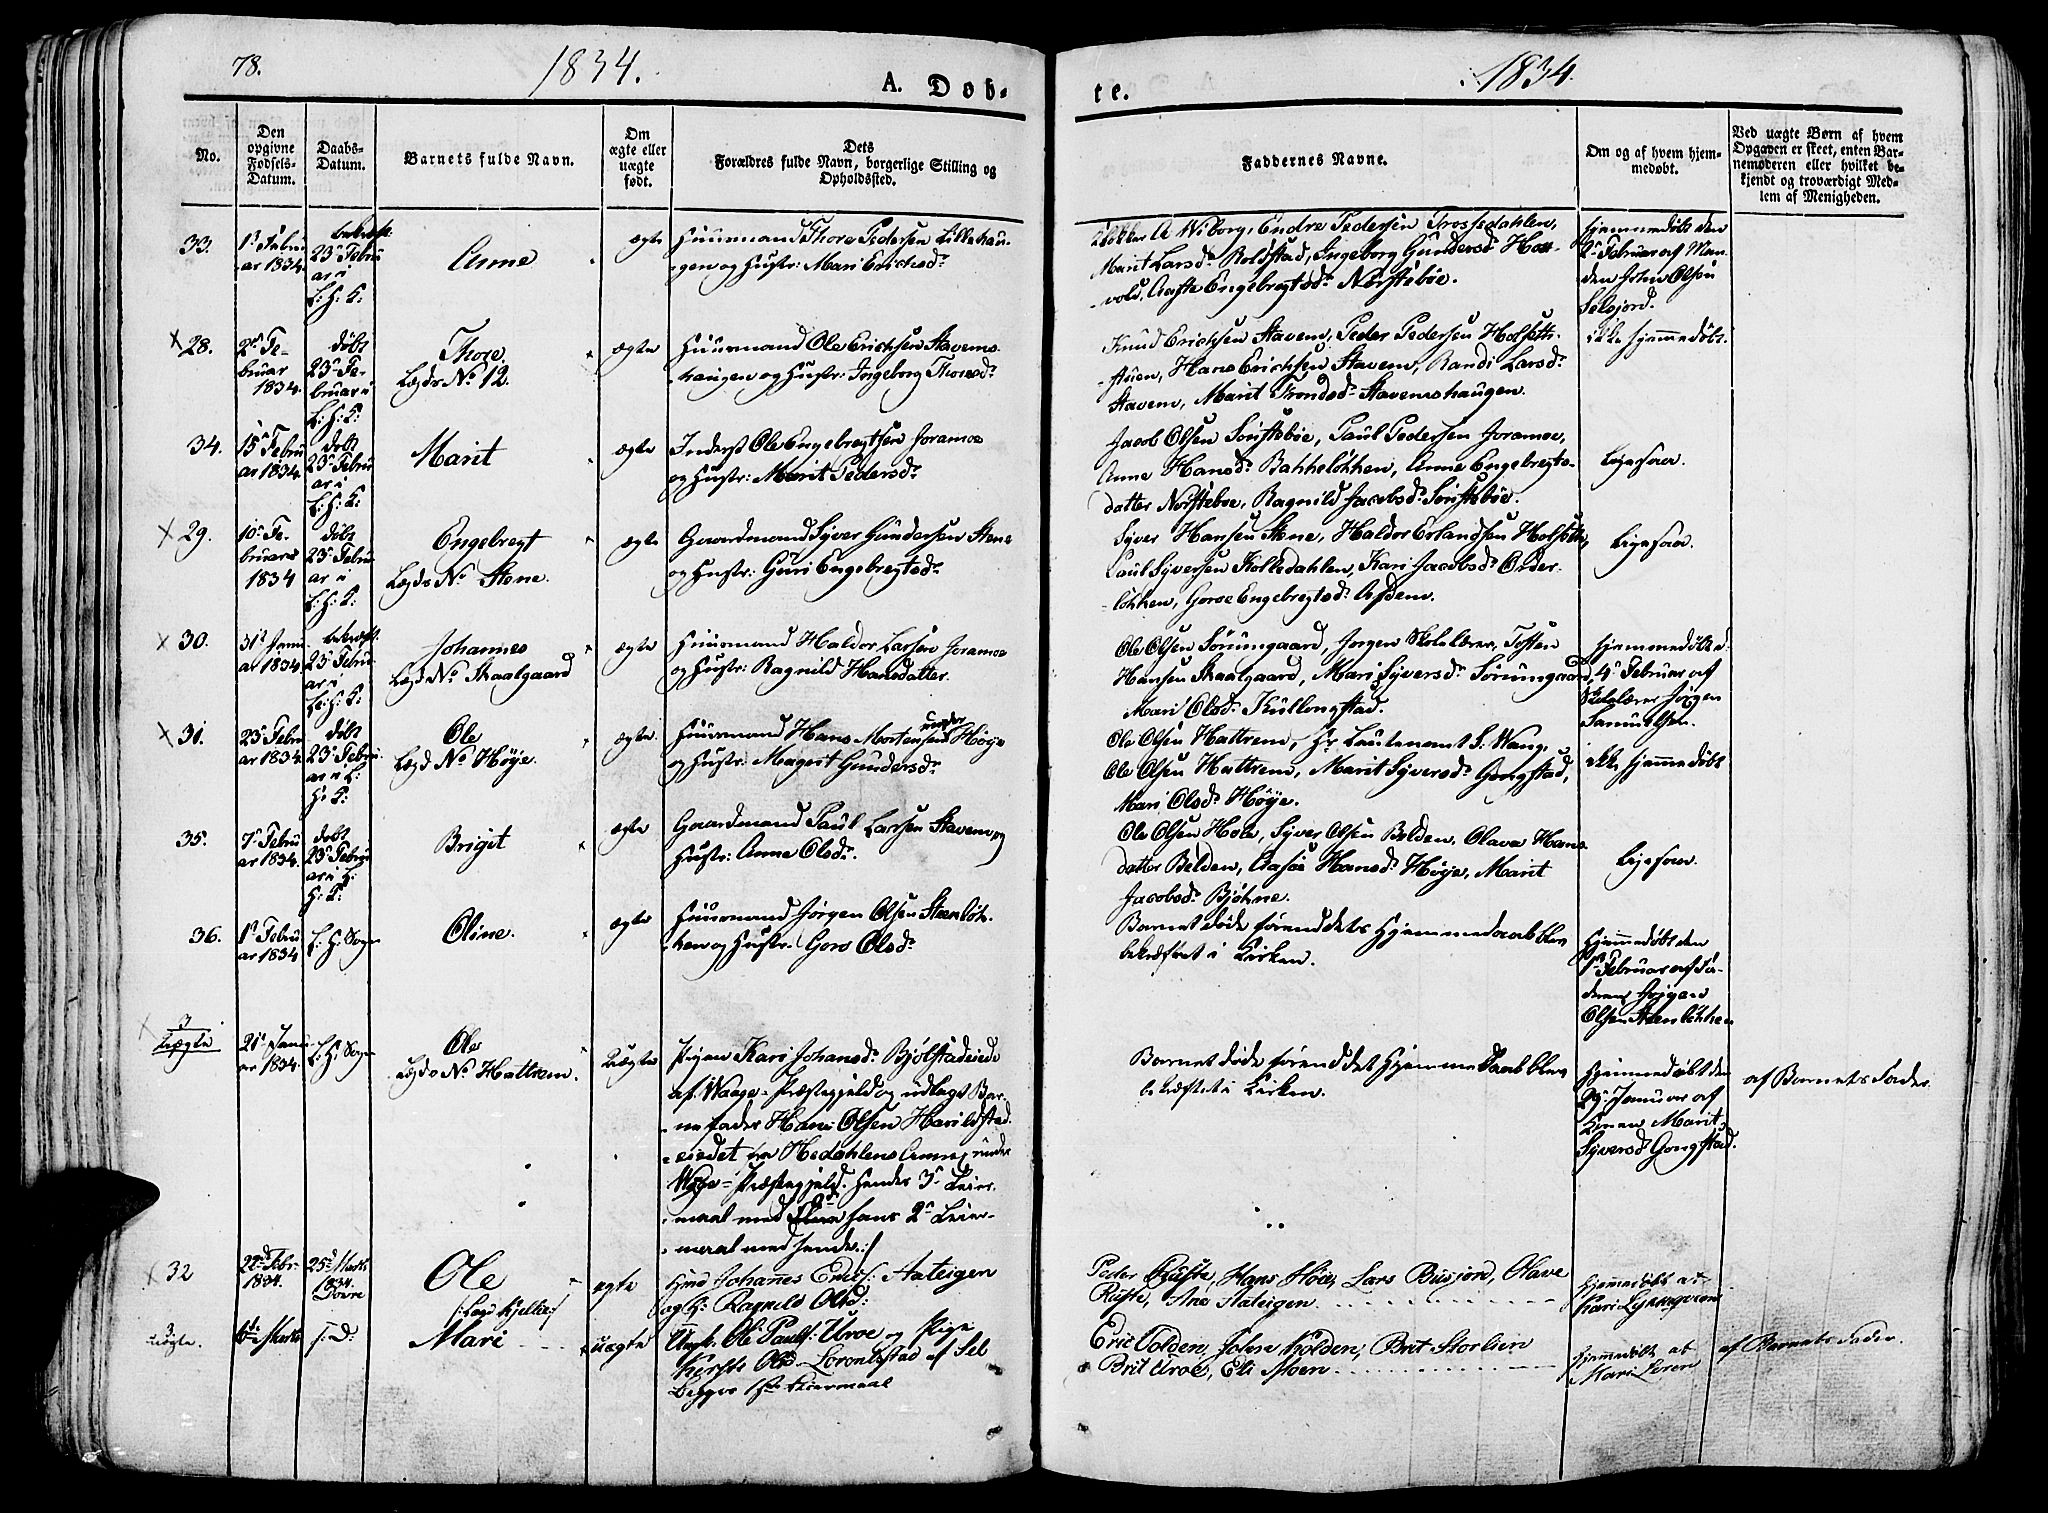 78.
1834.
A. Døb-
te.
1834.
No.
Den opgivne Fødsels-Datum.
Daabs-Datum.
Barnets fulde Navn.
Om ægte eller uægte født.
Dets Forældres fulde Navn, borgerlige Stilling og Opholdssted.
Faddernes Navne.
Om og af hvem hjem-medøbt.
Ved uægte Børn af hvem Opgaven er skeet, enten Bar-nemoderen eller hvilket be-kjendt og troværdigt Med-lem af Menigheden.
33.
1ste Febru
ar 1834.
bekræft.
23de Febru
ar i
L: H: K:
Anne
ægte
Huusmand Thore Pedersen Lillehau-
gen og Hustr: Mari Erichsd.
A Wiborg, Endre Pedersen Trossedahlen,
Marit Larsd. Roldstad, Ingeborg Gundersd. Hou-
vold, Engebregtsd. Nørsteböe.
hjemmedøbt den
2den Februar af Man-
den John Olsen
Selsjord.
28.
2den Fe-
bruar
1834.
døbt
23de Fe-
bruar i
L: H: K:
Thore
Lægds No. 12.
ægte
Huusmand Ole Erichsen Stavems-
haugen og Hustr: Ingeborg Thoresd.
Knud Erichsen Stavem, Peder Pedersen Holseth-
stuen, Hans Erichsen Stavem, Randi Larsd.
Stavem, Marit Trondsd. Stavemshaugen.
ikke hjemmedøbt.
34.
15de Febru
ar 1834.
døbt
23de Febru
ar i
L: H: K:
Marit
ægte
Inderst Ole Engebregtsen Joramoe
og Hustr: Marit Pedersd.
Jacob Olsen Sønsteböe, Paul Pedersen Joramoe,
Anne Hansd. Bakkeløkken, Anne Engebregts-
datter Nørsteböe, Ragnild Jacobsd. Sønsteböe.
Ligesaa.
29.
10de Fe-
bruar
1834
døbt
23de Febru
ar i
L: H: K:
Engebregt
Lægds No. Stene.
ægte
Gaardmand Syver Gundersen Stene
og Hustr: Guri Engebregtsd.
Syver Hansen Stene, Haldor Erlandsen Holseth,
Paul Syversen Kolledahlen, Kari Jacobsd. Older-
løkken, Goroe Engebregtsd. Afdem.
Ligesaa.
30.
31te Janu
ar 1834.
bekræft.
23de Febru
ar i
L: H: K:
Johannes
Lægd No. Skaalgaard
ægte
Huusmand Haldor Larsen Joramoe
og Hustr: Ragnild Hansdatter.
Ole Olsen Sörumgaard, Jørgen Skolelærer, Tosten
Hansen Skaalgaard, Mari Syversd. Sörumgaard,
Mari Olsd. Kullongstad.
hjemmedøbt d.
4de Februar af
Skolelærer Jørgen
Samuelsen.
31.
23de Febru
ar 1834.
døbt
23de Febru
ar i L:
H: K:
Ole
Lægd No. Höye.
ægte
Huusmand Hans Mortensen under Höye
og Hustr: Magrit Gundersd.
Ole Olsen Hattrem, Hr. Lieutenant S. Wang,
Ole Olsen Hattrem, Marit Syversd. Gongstad,
Mari Olsd. Höye.
ikke hjemmedøbt
35.
7de Febru
ar 1834.
døbt
23de Febru
ar i L:
H: K:
Brigit
ægte
Gaardmand Paul Larsen Stavem og
Hustr: Anne Olsd.
Ole Olsen Hole, Syver Olsen Belden, Olava Hans-
datter Belden, Hansd. Höye, Marit
Jacobsd. Bjöhne.
Ligesaa.
36.
1ste Febru
ar 1834
L: H: Sogn
Oline.
ægte
Huusmand Jørgen Olsen Steenløk-
ken og Hustr: Goro Olsd.
Barnet døde førend dets Hjemmedaab blev
bekræftet i Kirken.
Hjemmedøbt den
1ste Februar af Fa-
deren Jørgen
Olsen Steenløkken
3
Uægte
21de Janu
ar 1834.
L: H: Sogn
Ole
Lægds No. Hattrem.
Uægte
Pigen Kari Johansd. Bjølstadeiede
af Waage-Præstegjeld og udlagt Bar-
nefader Hans Olsen Harildstad
Hedahlens Annex under
Waage-Præstegjeld. Hendes 3de Leier-
maal med hans 2de Leier-
maal med hende.
Barnet døde førend det Hjemmedaab blev
bekræftet i Kirken.
Hjemmedøbt den
29de Januar af
Konen Marit
Syversd. Gongstad.
af Barnets Fader
32
22nd Febr.
1834.
25de Marts
1834.
Dovre
Ole
(: Lægd Kjelke :)
ægte
Hmd Johanes Ericks: Aateigen
og H: Ragnild Olsd:
Peder Ruste, Hans Höie, Lars Busjord, Olave
Ruste, Ane Aateigen.
hjemmedøbt af
Kari
3
uægte.
6te Marts
s. D:
Mari
uægte
Ungk. Ole Pauls: Uroe og Pige
Kirsti Olsd. Lorontsstad af Sel
Begges 1ste Leiermaal
Eric Tolden, John Kolden, Brit Storlien
Brit Uroe, Eli Moen
hjemmedøbt af
Mari Loren
af Barnets Fader.